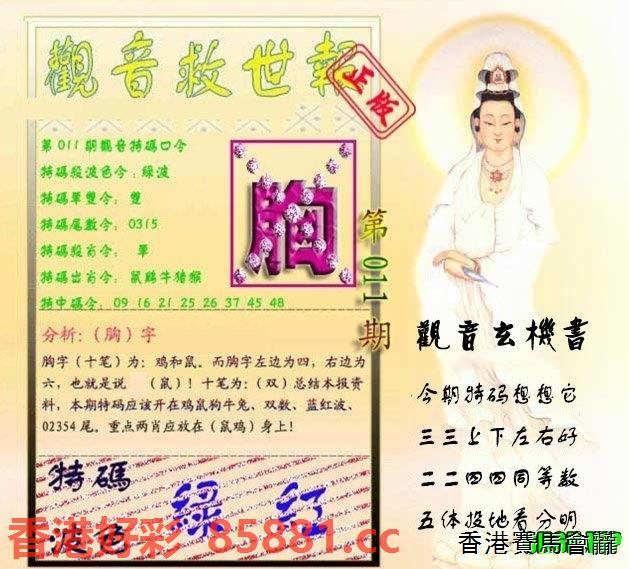 觀音救世報
正版
第011期觀音特碼口令
特碼殺波色令:綠波
特碼單雙令: 雙
特碼尾數令: 0315
特碼殺肖令: 單
特碼出肖令: 鼠鷄牛猪猴
特中碼令: 09 16 21 25 26 37 45 48
胸
第011期
分析:(胸)字
胸字(十笔)为: 鸡和鼠。而胸字左边为四, 右边为
六, 也就是说 (鼠)! 十笔为: (双) 总结本报资
料, 本期特码应该开在鸡鼠狗牛兔、双数、蓝红波、
02354 尾。重点两肖应放在(鼠鸡)身上!
特碼
波色
綠 红
觀音玄機書
今期特码想想它
三三上下左右好
二二四四同等数
五体投地看分明
香港好彩 85881.cc
香港賽馬會